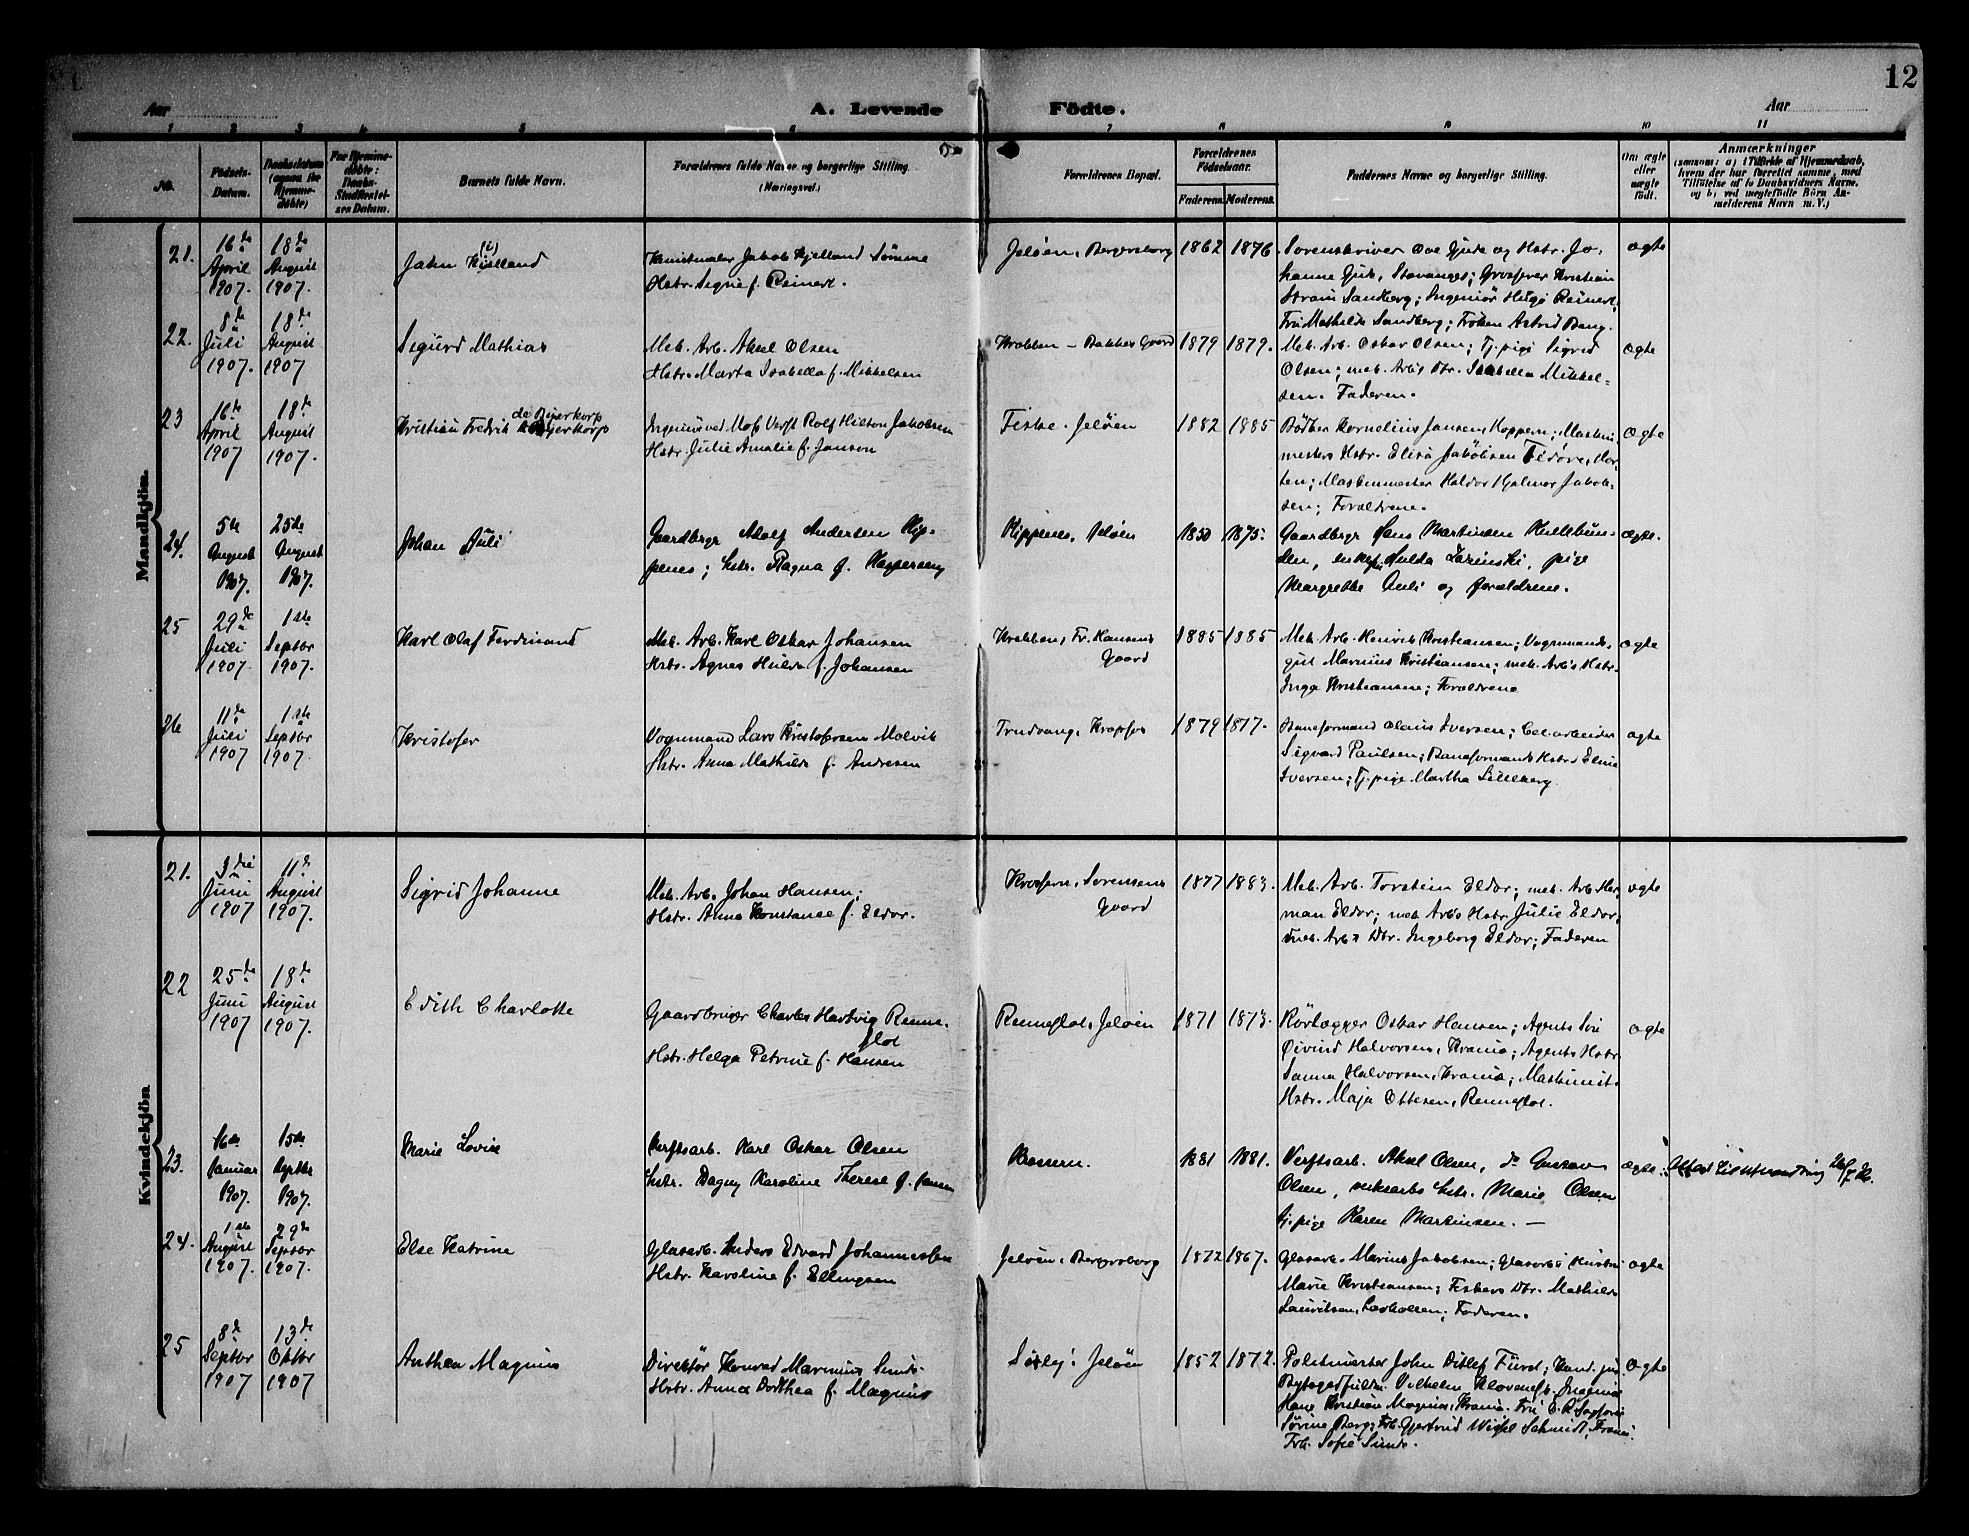 12
Aar
A. Levende
Födte.
Aar
1 2 3 4 5 6 7 8 9 10 11
No.
Födsels-
Datum.
Daabsdatum
(ogsaa for
Hjemme-
döbte)
For Hjemme-
döbte:
Daabs-
Stadfæstel-
ses Datum.
Barnets fulde Navn.
Forældrenes fulde Navne og borgerlige Stilling.
(Næringsvei.)
Forældrenes Bopæl.
Forældrenes
Födselsaar.
Faderens
Moderens.
Faddernes Navne og borgerlige Stilling.
Om ægte
eller
uægte
födt.
Anmærkninger
(saasom: a) i Tilfælde af Hjemmedaab,
hvem der har forrettet samme, med
Tilföielse af to Daabsvidners Navne,
og b) ved uægtefödte Börn An-
melderens Navn m. V.)
Mandkjön.
21.
16de
April
1907.
18de
August
1907.
Jahn Kjelland
Kunstmaler Jakob Kjelland Sømme
Hstr. Signe f. Reinert.
Jeløen, Bergersborg
1862
1876.
Sorenskriver Ove Gjude og Hstr. Jo-
hanne Gjude, Stavanger; Grosserer Kristian
Strøm Sandberg; Ingeniør Hugo Reinert,
Fru Mathilde Sandberg; Frøken Astrid Bang.
ægte
22.
8de
Juli
1907.
18de
August
1907
Sigurd Mathias
Mek. Arb. Aksel Olsen
Hstr. Marta Isabella f. Mikkelsen
Krabben - Bakkes Gaard
1879
1879.
Mek. Arb. Oskar Olsen; Tj. pige Sigrid
Olsen; mek. Arb's Dtr. Isabella Mikkel-
sen. Faderen.
ægte
23
16de
April
1907
18de
August
1907.
Kristian Fredrik
Ingeniør ved Mos Verft Rolf Hilton Jakobsen
Hstr. Julie Amalie f. Janson
Fiske. Jeløen
1882
1885
Bødker Kornelius Jansen, Koppern; Maskin-
mesters Hstr. Elisa Jakobsen
ten; Maskinmester Haldor Hjalmar Jakob-
sen; Forældrene.
ægte
24.
5te
August
1907.
25de
August
1907.
Johan Auli
Gaardbrgr Adolf Andersen Kip-
penes; hstr. Ragna f. Kaspersen
Kippenes, Jeløen
1850
1875.
Gaardbrgr Hans Martinsen
den, enkefr. Hulda Larinski, pige
Margrethe Auli og forældrene.
ægte.
25
29de
Juli
1907.
1ste
Septbr
1907.
Karl Olaf Ferdinand
Mek. Arb. Karl Oskar Johansen
Hstr. Agnes Hulda f. Johansen
Krabben, Fr. Hansens
Gaard
1885
1885
Mek. Arb. Henrik Kristiansen; Vognmands-
gut Marnius Kristiansen; mek. Arb's Hstr.
Inga Kristiansen; Forældrene
ægte
26
11de
Juli
1907
1ste
Septbr
1907.
Kristofer
Vognmand Lars Kristofersen Molvik
Hstr. Anna Mathilde f. Andresen
Trudvang, Krapfos
1879
1877.
Baneformand Olaus Iversen; Cel. arbeider
Sigvard Paulsen; Baneformands Hstr. Eline
Iversen; Tj. pige Martha Lilleberg.
ægte
Kvindekjön
21.
3die
Juni
1907
11de
August
1907.
Sigrid Johanne
Mek. Arb. Johan Hansen;
Hstr. Anna Konstanse f. Eldor.
Krossern, Sørensens
Gaard
1877
1883.
Mek. Arb. Torstein Eldor; mek. Arb. Her-
man Eldor; mek. Arb's Hstr. Julie Eldor;
mek. Arb's Dtr. Ingeborg Eldor; Faderen
ægte
22
25de
Juni
1907
18de
August
1907.
Edith Charlotte
Gaardbruger Charles Hartvig Renne-
flot
Hstr. Helga Petrine f. Hansen
Renneflot, Jeløen
1871
1873.
Rørlægger Oskar Hansen; Agents Søn
Øivind Halvorsen, Krania; Agents Hstr.
Sanna Halvorsen, Krania; Maskinist-
Hstr. Maja Ottesen, Renneflot.
ægte
23.
16de
Januar
1907.
15de
Septbr
1907.
Marie Lovise
Verftsarb. Karl Oskar Olsen
hstr. Dagny Karoline Therese f. Jansen
Bossern.
1881
1881.
Verftsarb. Aksel Olsen, do Gustav
Olsen, verksarbs hstr. Marie Olsen
tj. pige Karen Martinsen. —
ægte.
24.
1ste
August
1907.
29de
Septbr
1907.
Else Katrine
Glasarb. Anders Edvard Johannessen
Hstr. Karoline f. Ellingsen
Jeløen, Bergersborg
1872
1867.
Glasarb. Marius Jakobsen; Glasarb's Hustru
Marie Kristiansen; Fiskers Dtr. Mathilde
Lauritsen, Larkollen; Faderen.
ægte
25
8de
Septbr
1907
13de
Oktbr
1907
Anthea Magnus
Direktør Konrad Marinius Sunds-
Hstr. Anna Dorthea f. Magnus
Jeløen
1852
1872.
Politimester John Ditlef Fürst; Kand. jur.
Vilhelm
Hans Kristian Magnus, Krania. Fru
Sørine Berg; Frk. Gjertrud Schmidt,
Frk. Sofie Sunds.
ægte